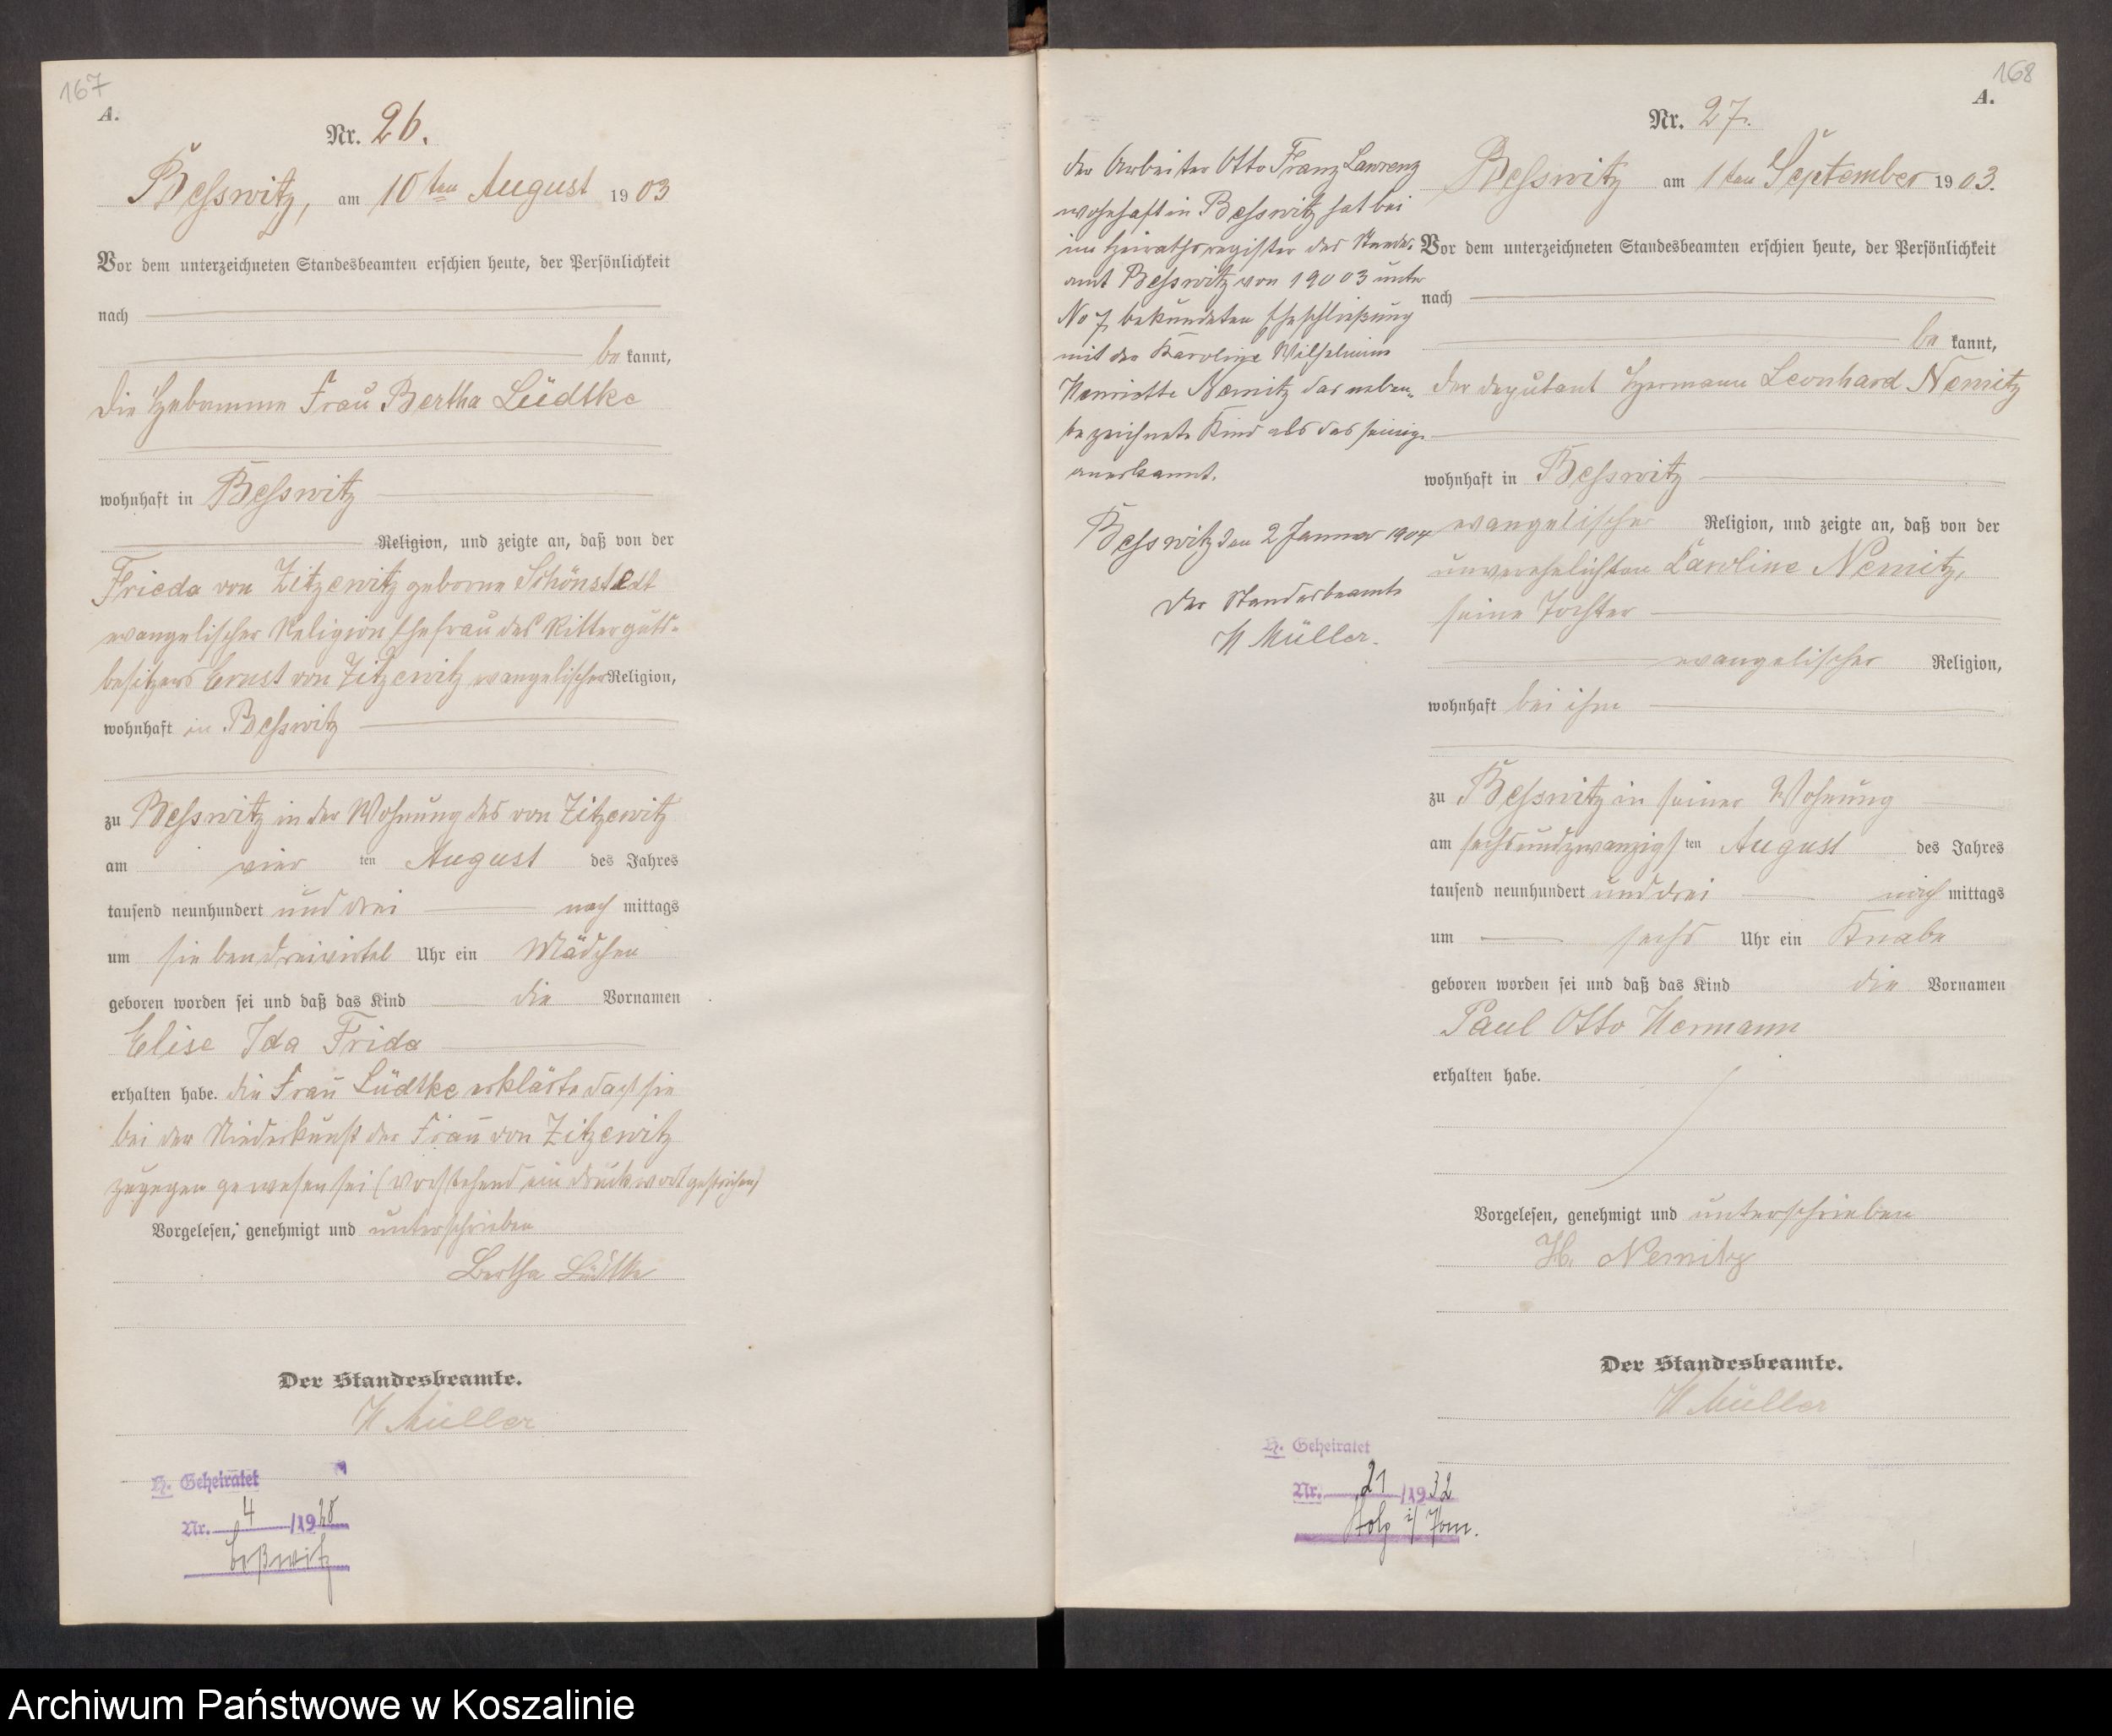 167
A.
Nr. 26.
Besswitz, am 10ten August 1903
Vor dem unterzeichneten Standesbeamten erschien heute, der Persönlichkeit
nach
be kannt,
die Hebamme Frau Bertha Lüdtke
wohnhaft in Besswitz
Religion, und zeigte an, daß von der
Frieda von Zitzewitz geborne Schönstedt
evangelischer Religion Ehefrau des Ritterguts-
besitzers Ernst von Zitzewitz evangelischer Religion,
wohnhaft in Besswitz
zu Besswitz in der Wohnung des von Zitzewitz
am vier ten August des Jahres
tausend neunhundert und drei nach mittags
um sieben dreiviertel Uhr ein Mädchen
geboren worden sei und daß das Kind die Vornamen
Elise Ida Frida
erhalten habe. die Frau Lüdtke erklärte dass sie
bei der Niederkunft der Frau von Zitzewitz
zugegen gewesen sei (Vorstehend ein Druckwort gestrichen)
Vorgelesen, genehmigt und unterschrieben
Bertha Lüdtke
Der Standesbeamte.
H Müller
H. Geheiratet
Nr. 4 /1928
Beßwitz
168
A.
Nr. 27.
der Arbeiter Otto Franz Lawrenz
wohnhaft in Besswitz hat bei
im Heirathsregister des Standes
amt Besswitz von 19003 unter
No 7 bekundeten Eheschließung
mit der Karoline Wilhelmine
Henriette Nemitz das neben-
bezeichnete Kind als das seinige
anerkannt.
Besswitz den 2 Januar 1904
Der Standesbeamte
H Müller.
Besswitz am 1ten September 1903.
Vor dem unterzeichneten Standesbeamten erschien heute, der Persönlichkeit
nach
be kannt,
der Deputant Hermann Leonhard Nemitz
wohnhaft in Besswitz
evangelischer Religion, und zeigte an, daß von der
unverehelichten Karoline Nemitz,
seine Tochter
evangelischer Religion,
wohnhaft bei ihm
zu Besswitz in seiner Wohnung
am sechsundzwanzigs ten August des Jahres
tausend neunhundert und drei nach mittags
um sechs Uhr ein Knabe
geboren worden sei und daß das Kind die Vornamen
Paul Otto Hermann
erhalten habe.
Vorgelesen, genehmigt und unterschrieben
H. Nemitz
Der Standesbeamte.
H Müller
H. Geheiratet
Nr. 21 /1932
Stolp i/ Pom.
Archiwum Państwowe w Koszalinie